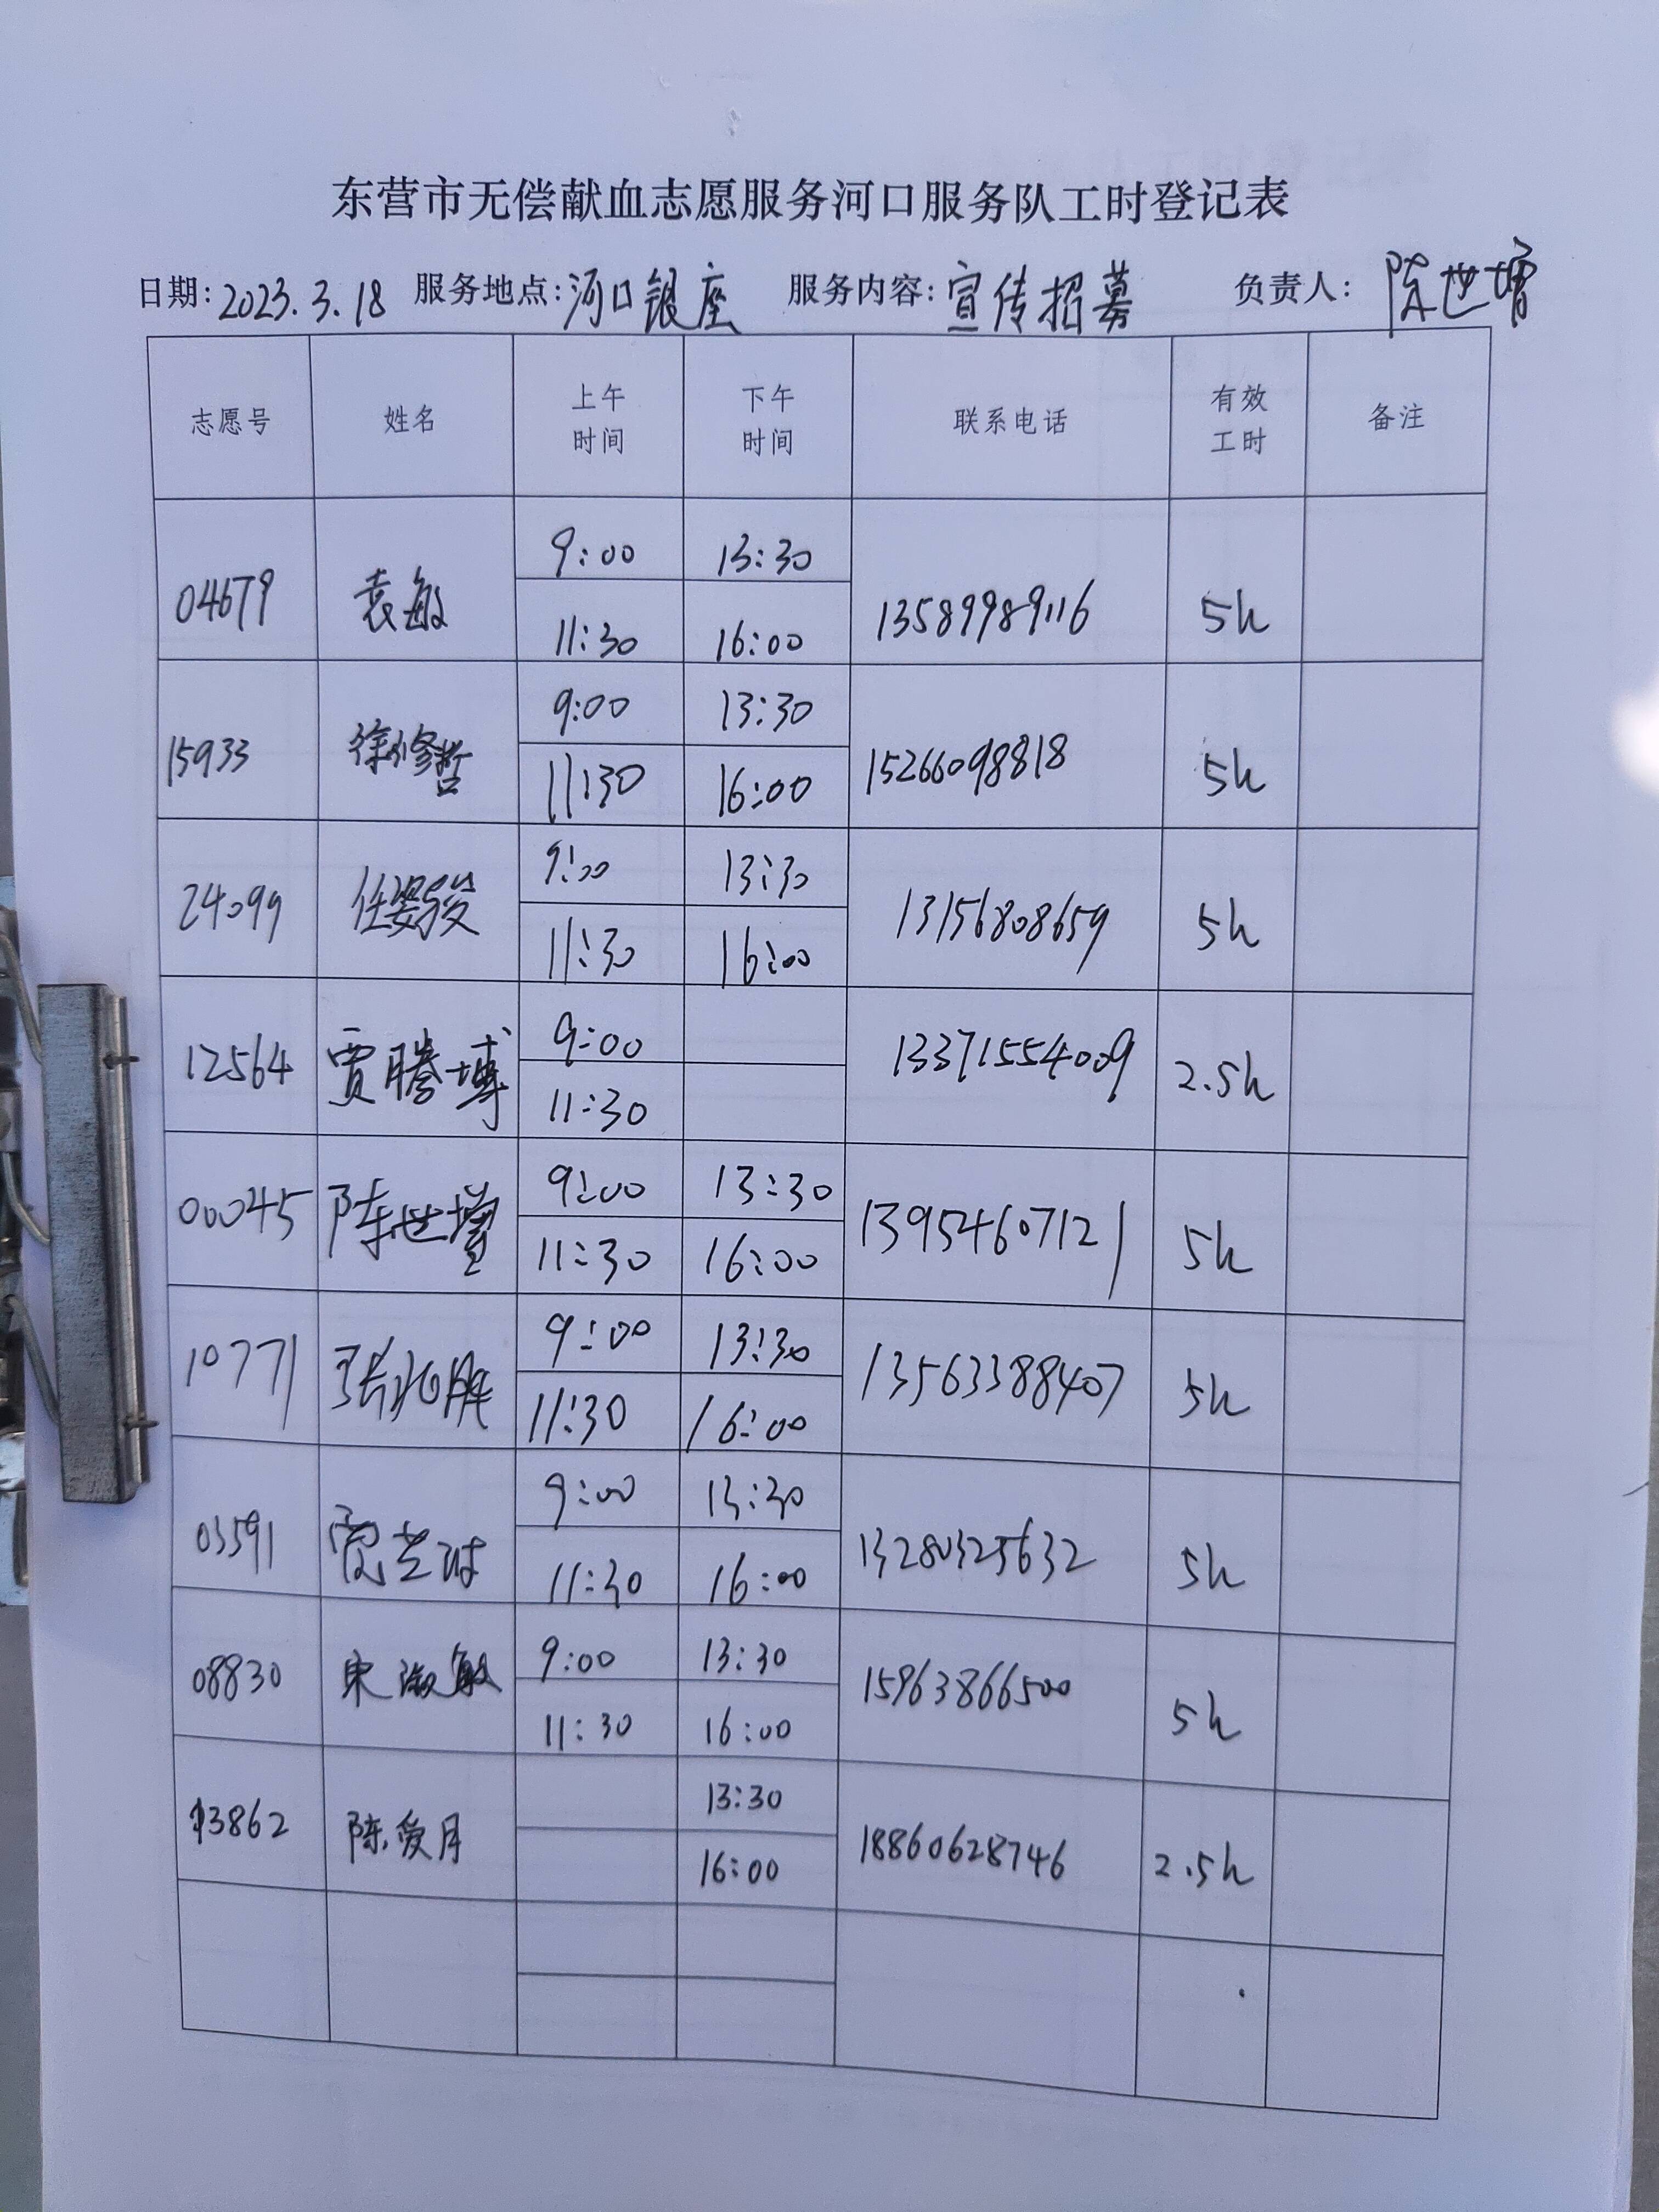 东营市无偿献血志愿服务河口服务队工时登记表
日期: 2023.3.18 服务地点: 河口银座 服务内容: 宣传招募 负责人: 陈世增
志愿号 姓名 上午时间 下午时间 联系电话 有效工时 备注
04679 袁敏 9:00 13:30 13589989116 5h
11:30 16:00
15933 徐修哲 9:00 13:30 15266098818 5h
11:30 16:00
24099 9:00 13:30 13156808659 5h
11:30 16:00
12564 贾腾博 9:00 13371554009 2.5h
11:30
00045 陈世增 9:00 13:30 13954607121 5h
11:30 16:00
10771 9:00 13:30 13563388407 5h
11:30 16:00
03591 9:00 13:30 13280325632 5h
11:30 16:00
08830 宋淑敏 9:00 13:30 15963866500 5h
11:30 16:00
13862 陈爱月 13:30 18860628746 2.5h
16:00